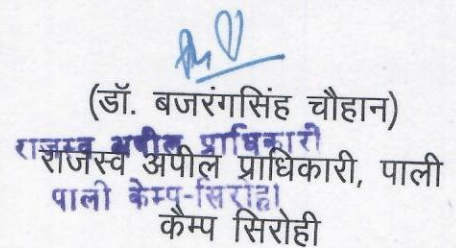 (डॉ. बजरंगसिंह चौहान)
राजस्व अपील प्राधिकारी
राजस्व अपील प्राधिकारी, पाली
पाली केम्प-सिरोही
कैम्प सिरोही